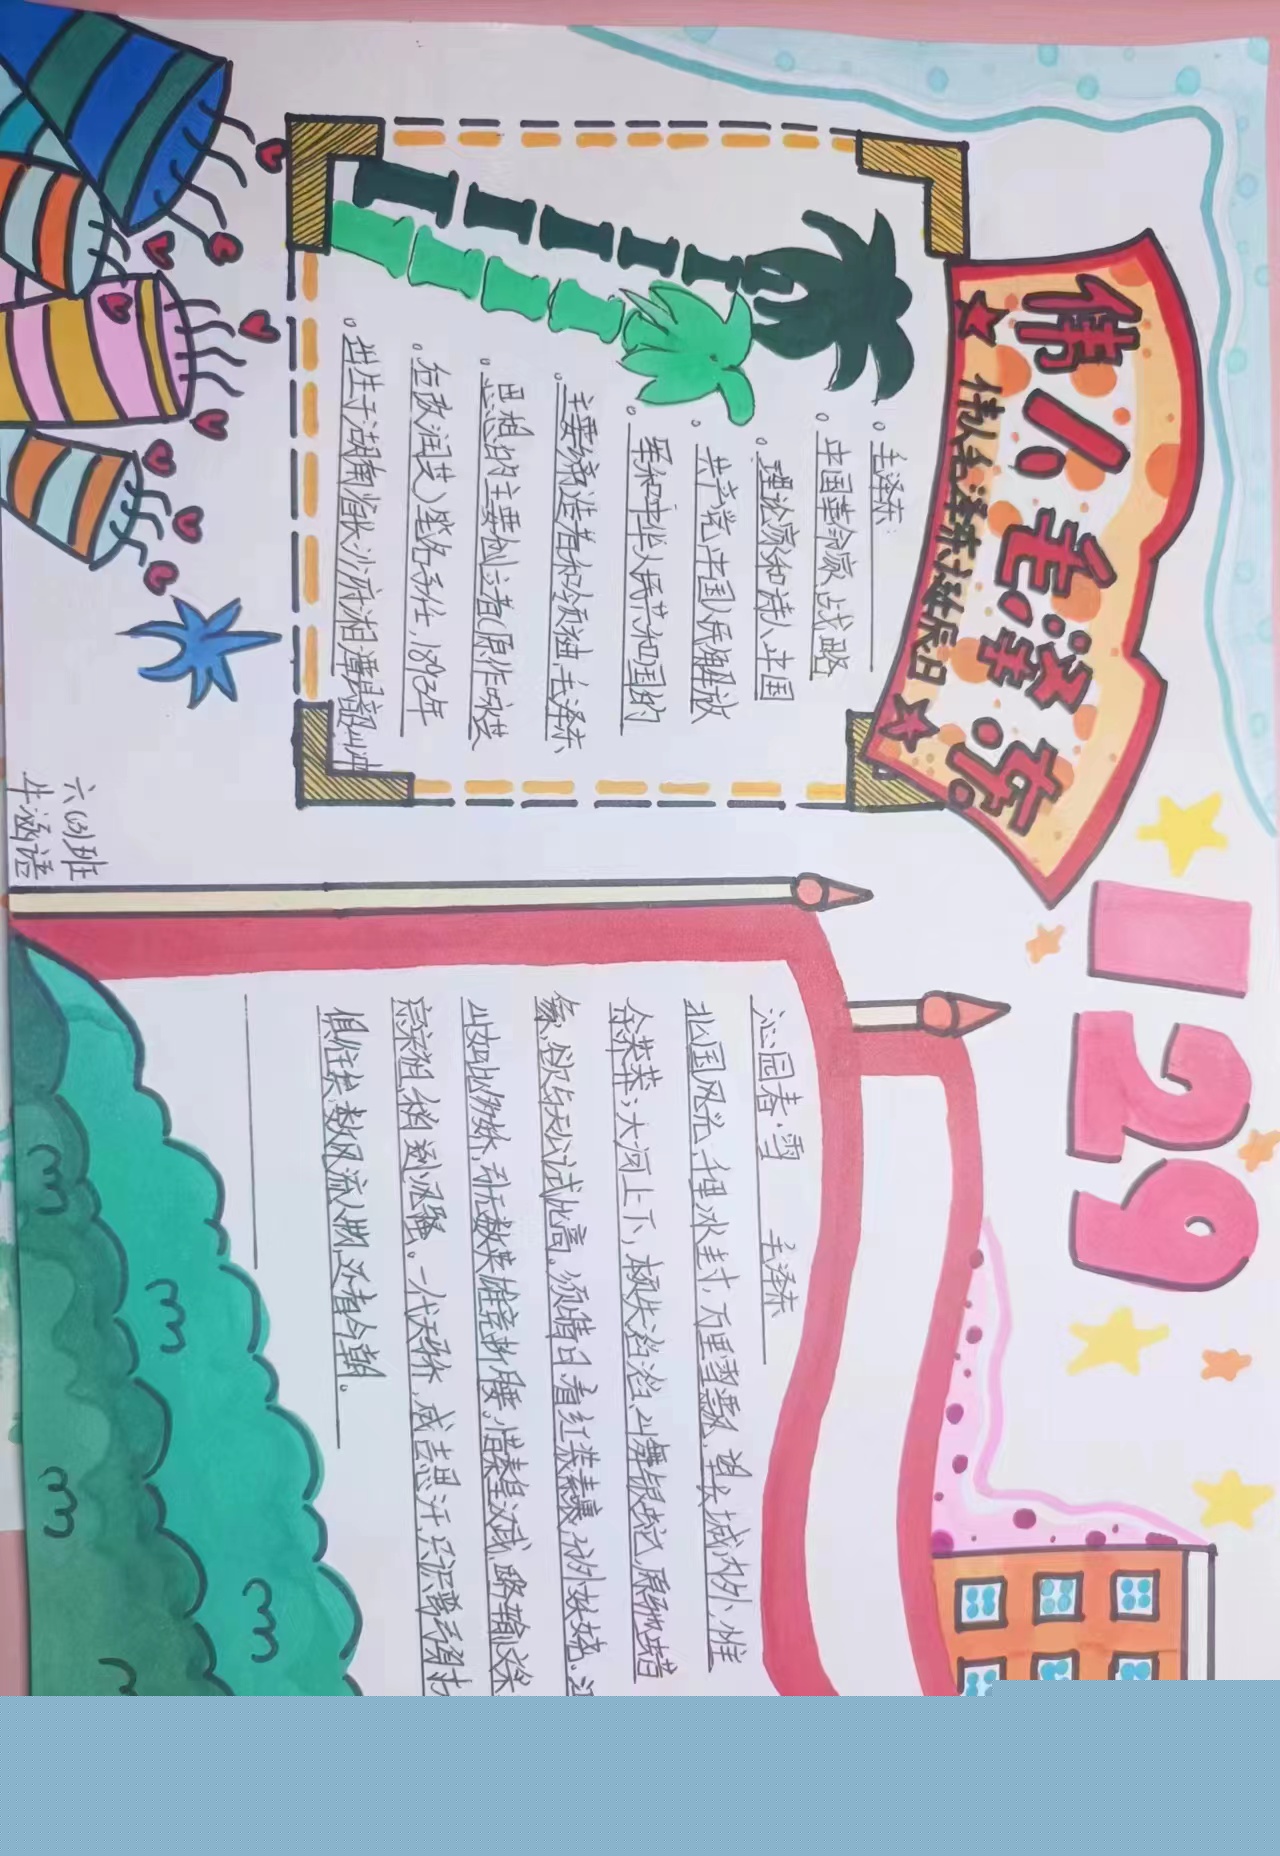 伟人毛泽东
伟人毛泽东诞辰日
129
毛泽东
中国革命家,战略
理论家和诗人,中国
共产党,中国人民解放
军和中华人民共和国的
主要缔造者和领袖,毛泽东
思想的主要创立者(原作咏芝
后改润芝)笔名子任,1893年
生于湖南省长沙府湘潭县韶山冲
六(3)班
牛涵语
沁园春·雪 毛泽东
北国风光,千里冰封,万里雪飘,望长城内外,惟
余莽莽;大河上下,顿失滔滔,山舞银蛇,原驰蜡
象,欲与天公试比高。须晴日,看红装素裹,分外妖娆。江
山如此多娇,引无数英雄竞折腰,惜秦皇汉武,略输文采
宗宋祖,稍逊风骚。一代天骄,成吉思汗,只识弯弓射
俱往矣,数风流人物,还看今朝。